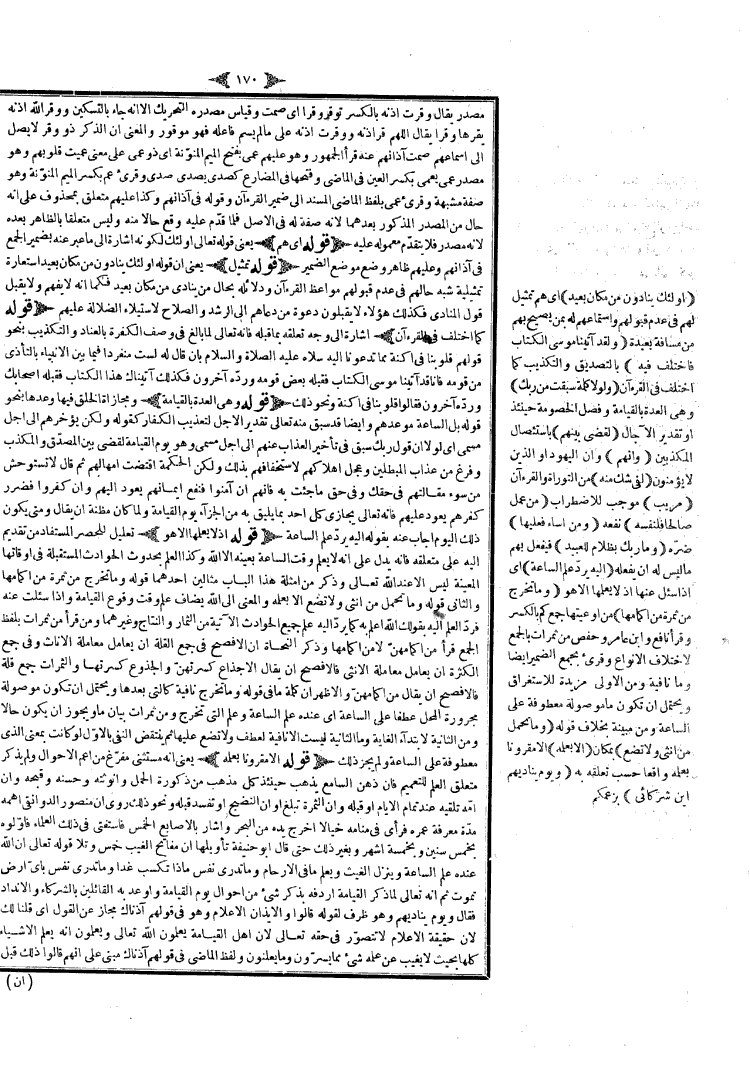 ﴿ ١٧٠ ﴾
مصدر يقال وقرت اذنه بالكسر توقر وقرا اى صمت وقياس مصدره التحريك الا انه جاء بالتسكين ووقر الله اذنه
يقرها وقرا يقال اللهم قر اذنه ووقرت اذنه على مالم يسم فاعله فهو موقور والمعنى ان الذكر ذو وقر لا يصل
الى اسماعهم صمت آذانهم عنه قرأ الجمهور وهو عليهم عمى بفتح الميم المنونة اى ذو عمى على معنى عميت قلوبهم وهو
مصدر عمى يعمى بكسر العين فى الماضى وفتحها فى المضارع كصدى يصدى صدى وقرئ عم بكسر الميم المنونة وهو
صفة مشبهة وقرئ عمى بلفظ الماضى المسند الى ضمير القرءآن وقوله فى آذانهم وكذا عليهم متعلق بمحذوف على انه
حال من المصدر المذكور بعدهما لانه صفة له فى الاصل فلما قدم عليه وقع حالا منه وليس متعلقا بالظاهر بعده
لانه مصدر فلا يتقدم معموله عليه ﴿ قوله اى هم ﴾ يعنى قوله تعالى اولئك لكونه اشارة الى ماعبر عنه بضمير الجمع
فى آذانهم وعليهم ظاهر وضع موضع الضمير ﴿ قوله تمثيل ﴾ يعنى ان قوله اولئك ينادون من مكان بعيد استعارة
تمثيلية شبه حالهم فى عدم قبولهم مواعظ القرءآن ودلائله بحال من ينادى من مكان بعيد فكما انه لايفهم ولايقبل
قول المنادى فكذلك هؤلاء لايقبلون دعوة من دعاهم الى الرشد والصلاح لاستيلاء الضلالة عليهم ﴿ قوله
كما اختلف فى القرءآن ﴾ اشارة الى وجه تعلقه بما قبله فانه تعالى لما بالغ فى وصف الكفرة بالعناد والتكذيب بنحو
قولهم قلوبنا فى اكنة مما تدعونا اليه سلاه عليه الصلاة والسلام بان قال له لست منفردا فيما بين الانبياء بالتأذى
من قومه فانا قد آتينا موسى الكتاب فقبله بعض قومه ورده آخرون فكذلك آتيناك هذا الكتاب فقبله اصحابك
ورده آخرون فقالوا قلوبنا فى اكنة ونحو ذلك ﴿ قوله وهى العدة بالقيامة ﴾ ومجازاة الخلق فيها وعدها بنحو
قوله بل الساعة موعدهم وايضا قد سبق منه تعالى تقدير الاجل لتعذيب الكفار كقوله ولكن يؤخرهم الى اجل
مسمى اى لولا ان قول ربك سبق فى تأخير العذاب عنهم الى اجل مسمى وهو يوم القيامة لقضى بين المصدق والمكذب
وفرغ من عذاب المبطلين وعجل اهلاكهم لاستحقاقهم بذلك ولكن الحكمة اقتضت امهالهم ثم قال لاتستوحش
من سوء مقالتهم فى حقك وفى حق ماجئت به فانهم ان آمنوا فنفع ايمانهم يعود اليهم وان كفروا فضرر
كفرهم يعود عليهم فانه تعالى يجازى كل احد بما يليق به من الجزآء يوم القيامة ولما كان مظنة ان يقال ومتى يكون
ذلك اليوم اجاب عنه بقوله اليه يرد علم الساعة ﴿ قوله اذ لايعلمها الا هو ﴾ تعليل للحصر المستفاد من تقديم
اليه على متعلقه فانه يدل على انه لايعلم وقت الساعة بعينه الا الله وكذا العلم بحدوث الحوادث المستقبلة فى اوقاتها
المعينة ليس الا عند الله تعالى وذكر من امثلة هذا الباب مثالين احدهما قوله وما تخرج من ثمرة من اكمامها
والثانى قوله وما تحمل من انثى ولاتضع الا بعلمه والمعنى الى الله يضاف علم وقت وقوع القيامة واذا سئلت عنه
فرد العلم اليه بقولك الله اعلم به كما يرد اليه علم جميع الحوادث الآتية من الثمار والنتاج وغيرهما ومن قرأ من ثمرات بلفظ
الجمع قرأ من اكمامهن لامن اكمامها وذكر النحاة ان الافصح فى جمع القلة ان يعامل معاملة الاناث وفى جمع
الكثرة ان يعامل معاملة الانثى فالافصح ان يقال الاجذاع كسرتهن والجذوع كسرتها والثمرات جمع قلة
فالافصح ان يقال من اكمامهن والاظهر ان كلمة ما فى قوله وما تخرج نافية كالتى بعدها ويحتمل ان تكون موصولة
مجرورة المحل عطفا على الساعة اى عنده علم الساعة وعلم التى تخرج ومن ثمرات بيان ما ويجوز ان يكون حالا
ومن الثانية لابتدآء الغاية وما الثانية ليست الا نافية لعطف ولاتضع عليها ثم ينتقض النفى بالا ولو كانت بمعنى الذى
معطوفة على الساعة ولم يجز ذلك ﴿ قوله الا مقرونا بعلمه ﴾ يعنى انه مستثنى مفرغ من اعم الاحوال ولم يذكر
متعلق العلم للتعميم فان ذهن السامع يذهب حينئذ كل مذهب من ذكورة الحمل وانوثته وحسنه وقبحه وان
امه تلقيه عند تمام الايام او قبله وان الثمرة تبلغ او ان النضيج او تفسد قبله ونحو ذلك روى ان منصور الدوانقى اهمه
مدة معرفة عمره فرأى فى منامه خيالا اخرج يده من البحر واشار بالاصابع الخمس فاستفتى فى ذلك العلماء فأولوه
بخمس سنين وبخمسة اشهر وبغير ذلك حتى قال ابو حنيفة تأويلها ان مفاتيح الغيب خمس وتلا قوله تعالى ان الله
عنده علم الساعة وينزل الغيث ويعلم مافى الارحام وماتدرى نفس ماذا تكسب غدا وماتدرى نفس باى ارض
تموت ثم انه تعالى لما ذكر القيامة اردفه بذكر شئ من احوال يوم القيامة واوعد به القائلين بالشركاء والانداد
فقال ويوم يناديهم وهو ظرف لقوله قالوا والايذان الاعلام وهو فى قولهم آذناك مجاز عن القول اى قلنا لك
لان حقيقة الاعلام لاتتصور فى حقه تعالى لان اهل القيامة يعلمون الله تعالى ويعلمون انه يعلم الاشياء
كلها بحيث لايغيب عن علمه شئ مما يسرون ومايعلنون ولفظ الماضى فى قولهم آذناك مبنى على انهم قالوا ذلك قبل
(ان)
(اولئك ينادون من مكان بعيد) اى هم تمثيل
لهم فى عدم قبولهم واستماعهم له بمن يصيح بهم
من مسافة بعيدة (ولقد آتينا موسى الكتاب
فاختلف فيه) بالتصديق والتكذيب كما
اختلف فى القرءآن (ولولا كلمة سبقت من ربك)
وهى العدة بالقيامة وفصل الخصومة حينئذ
او تقدير الآجال (لقضى بينهم) باستئصال
المكذبين (وانهم) وان اليهود او الذين
لايؤمنون (لفى شك منه) من التوراة او القرءآن
(مريب) موجب للاضطراب (من عمل
صالحا فلنفسه) نفعه (ومن اساء فعليها)
ضره (وما ربك بظلام للعبيد) فيفعل بهم
ماليس له ان يفعله (اليه يرد علم الساعة) اى
اذا سئل عنها اذ لايعلمها الا هو (وما تخرج
من ثمرة من اكمامها) من اوعيتها جمع كم بالكسر
وقرأ نافع وابن عامر وحفص من ثمرات بالجمع
لاختلاف الانواع وقرئ بجمع الضمير ايضا
وما نافية ومن الاولى مزيدة للاستغراق
ويحتمل ان تكون ما موصولة معطوفة على
الساعة ومن مبينة بخلاف قوله (وما تحمل
من انثى ولاتضع) بمكان (الا بعلمه) الا مقرونا
بعلمه واقعا حسب تعلقه به (ويوم يناديهم
اين شركائى) بزعمكم